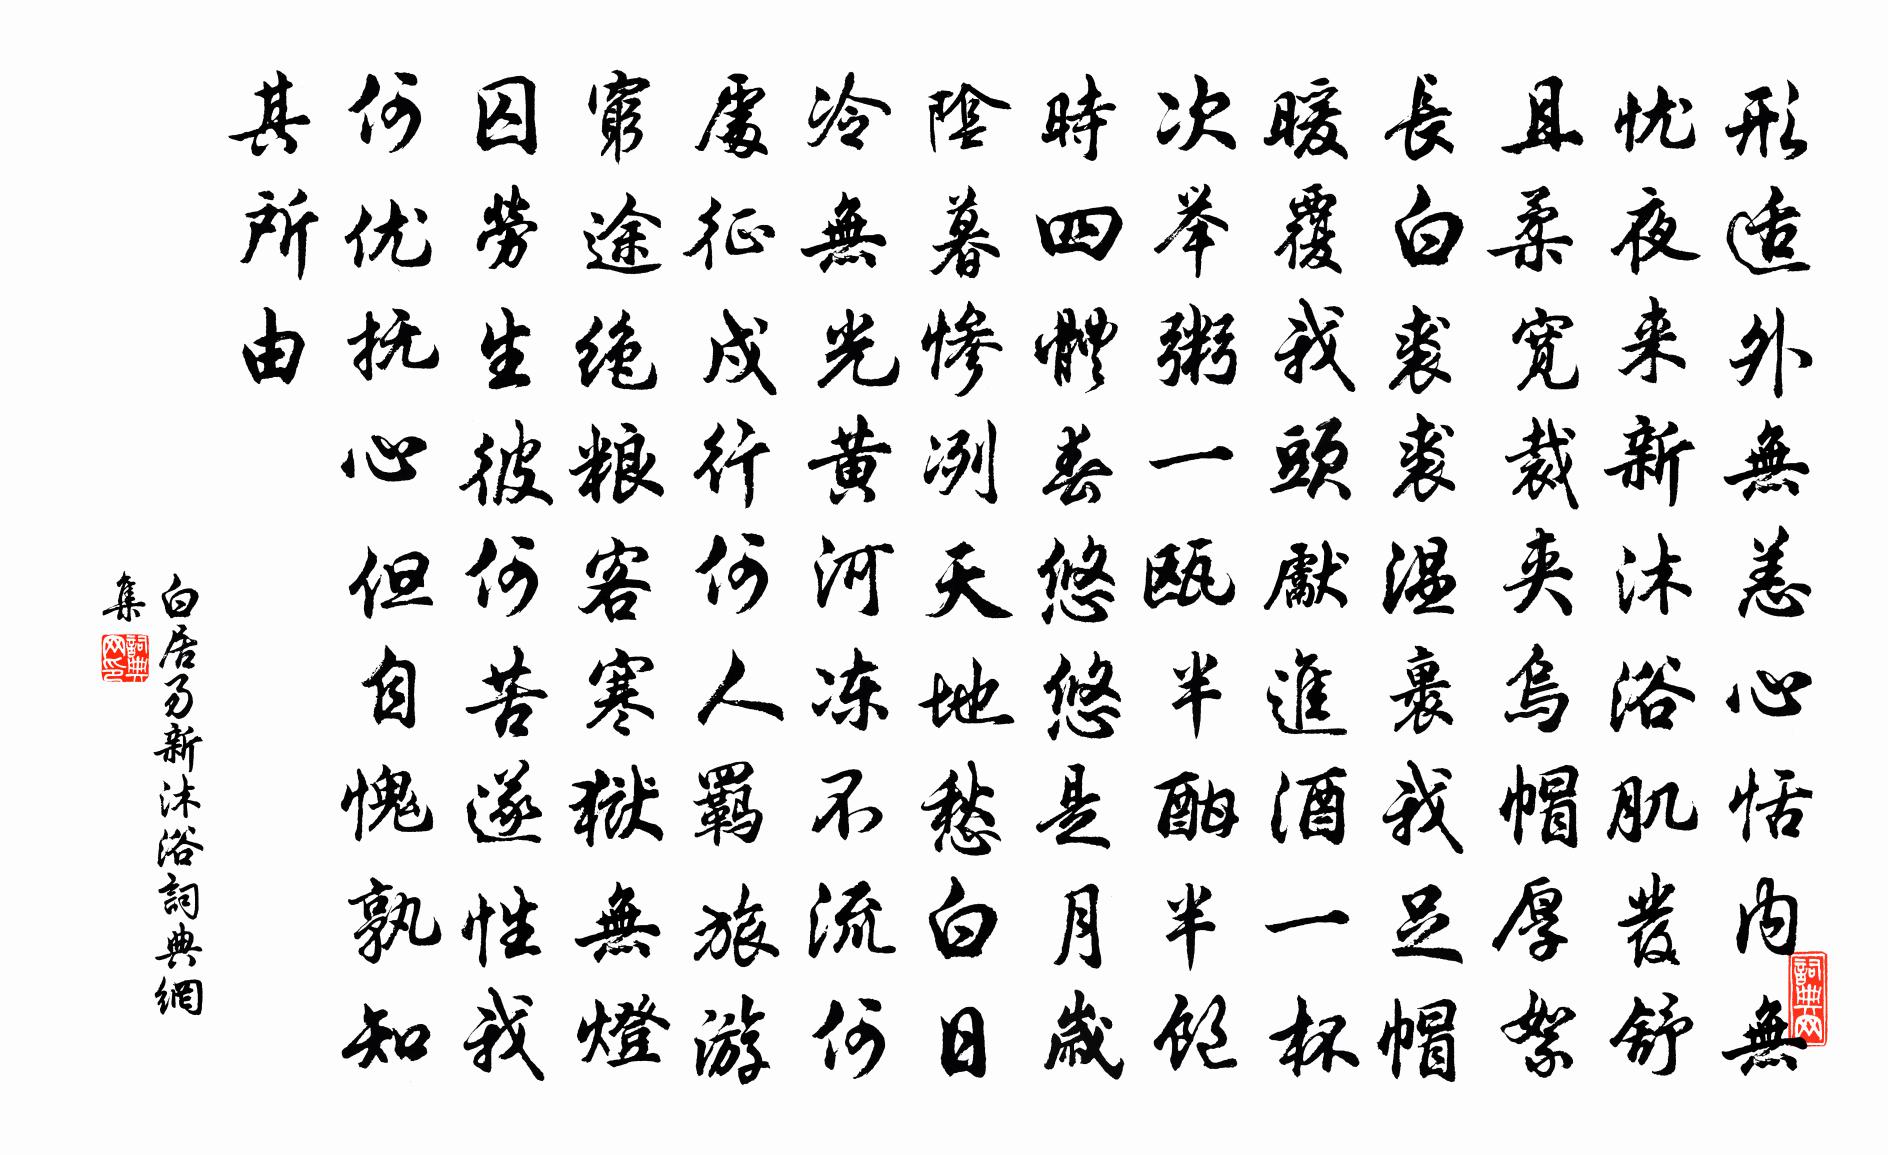 形适外無恙心恬内無
忧夜来新沐浴肌發舒
且柔寬裁夹烏帽厚絮
長白裘裘温裹我足帽
暖覆我頭獻進酒一杯
次举粥一瓯半酣半飽
時四體春悠悠是月歲
陰暮惨冽天地愁白日
冷無光黄河冻不流何
處征戍行何人羈旅游
窮途绝粮客寒獄無燈
囚勞生彼何苦遂性我
何优抚心但自愧孰知
其所由
白居易新沐浴詞典網
集
詞典网印
詞典网